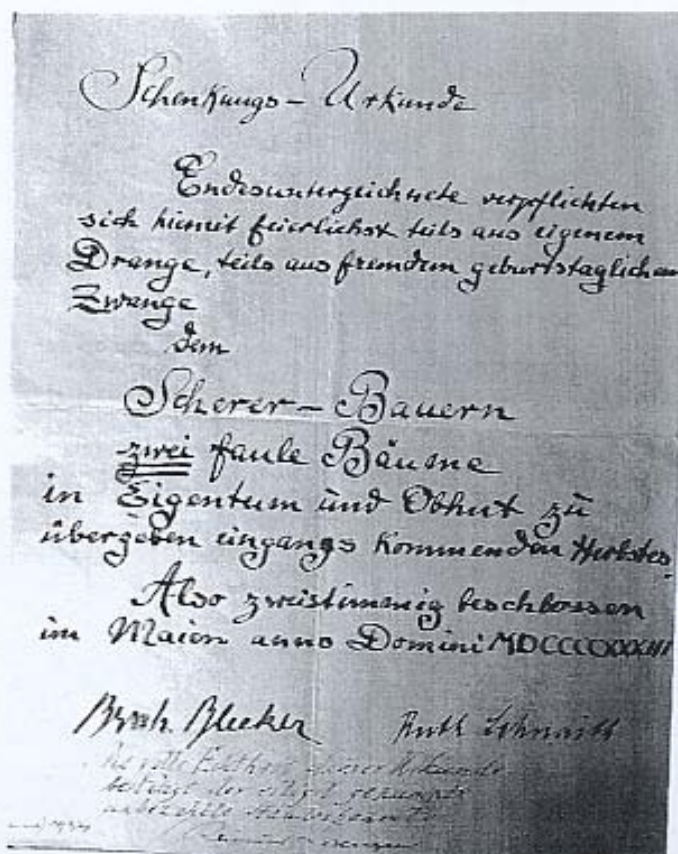 Schenkungs-Urkunde
Endesunterzeichnete verpflichten
sich hiemit feierlichst teils aus eigenem
Drange, teils aus fremdem geburtstaglichem
Zwange
dem
Scherer-Bauern
zwei faule Bäume
in Eigentum und Obhut zu
übergeben eingangs kommenden Herbstes.
Also zweistimmig beschlossen
im Maien anno Domini
Bleeker Ruth Schnaith
dieser Urkunde
bestätigt der